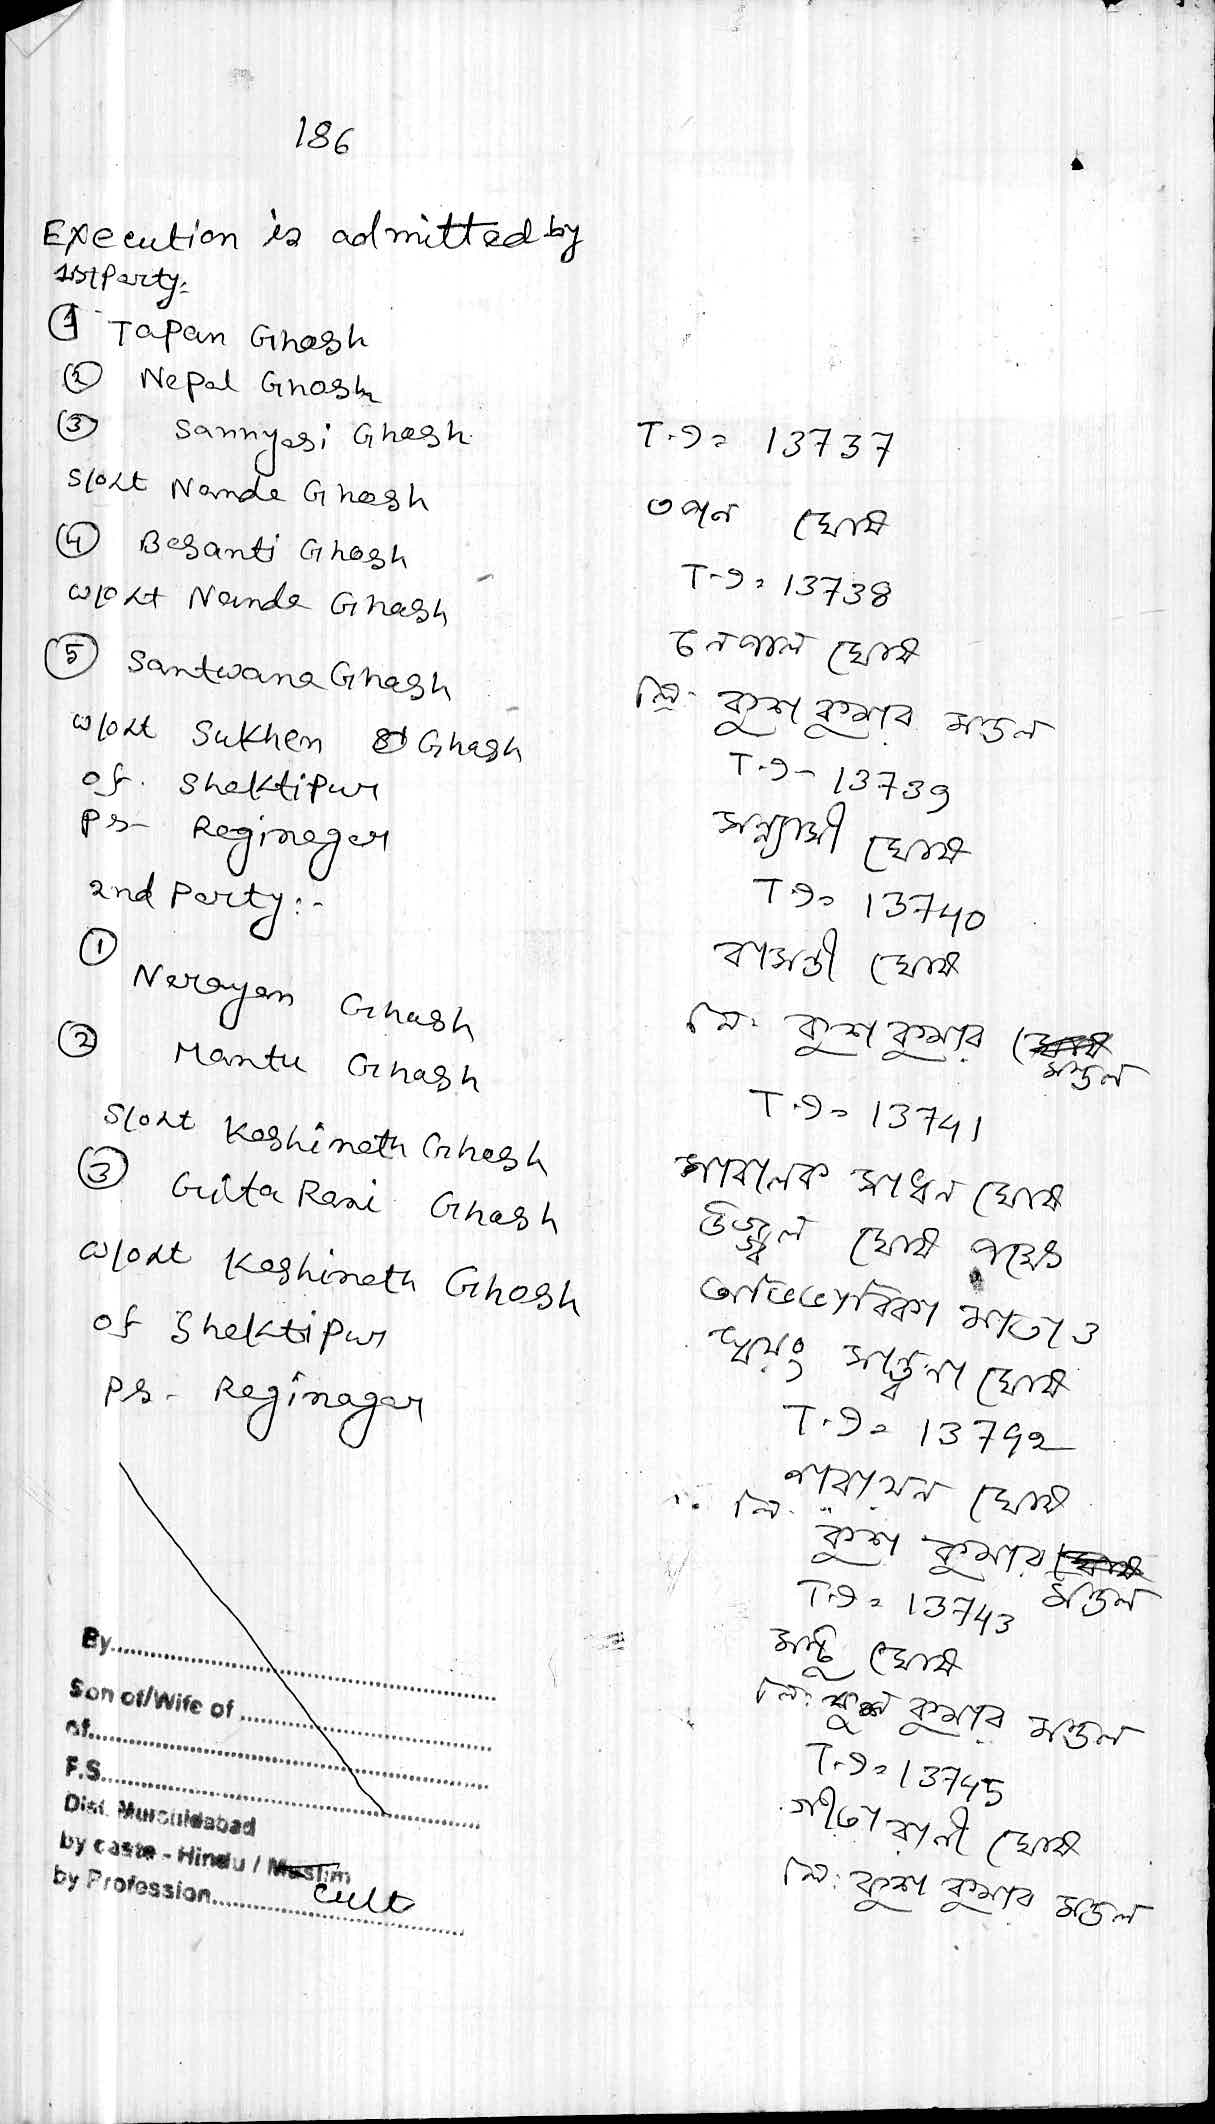 186
Execution is admitted by
1st Party:
① Tapan Ghosh
② Nepal Ghosh
③ Sannyasi Ghosh
S/o Lt Nanda Ghosh
④ Basanti Ghosh
W/o Lt Nanda Ghosh
⑤ Santwana Ghosh
W/o Lt Sukhen Ghosh
of. Shaktipur
PS- Reginagar
2nd Party:-
① Narayan Ghosh
② Mantu Ghosh
S/o Lt Kashinath Ghosh
③ Gita Rani Ghosh
W/o Lt Kashinath Ghosh
of Shaktipur
PS- Reginagar
By
Son of/Wife of
of
F.S.
Dist. Murshidabad
by caste - Hindu / Muslim
by Profession Cult
T.I= 13737
তপন ঘোষ
T-I= 13738
নেপাল ঘোষ
লি: কুশ কুমার মন্ডল
T.I- 13739
সন্ন্যাসী ঘোষ
T.I= 13740
বাসন্তী ঘোষ
লি: কুশ কুমার মন্ডল
T.I= 13741
সাবালক সাধন ঘোষ
উজ্জ্বল ঘোষ পক্ষে
অভিভাবিকা মাতা ও
স্বয়ং সান্ত্বনা ঘোষ
T.I= 13742
নারায়ন ঘোষ
লি:
কুশ কুমার মন্ডল
T.I= 13743
মন্টু ঘোষ
লি: কুশ কুমার মন্ডল
T.I= 13745
গীতা রানী ঘোষ
লি: কুশ কুমার মন্ডল